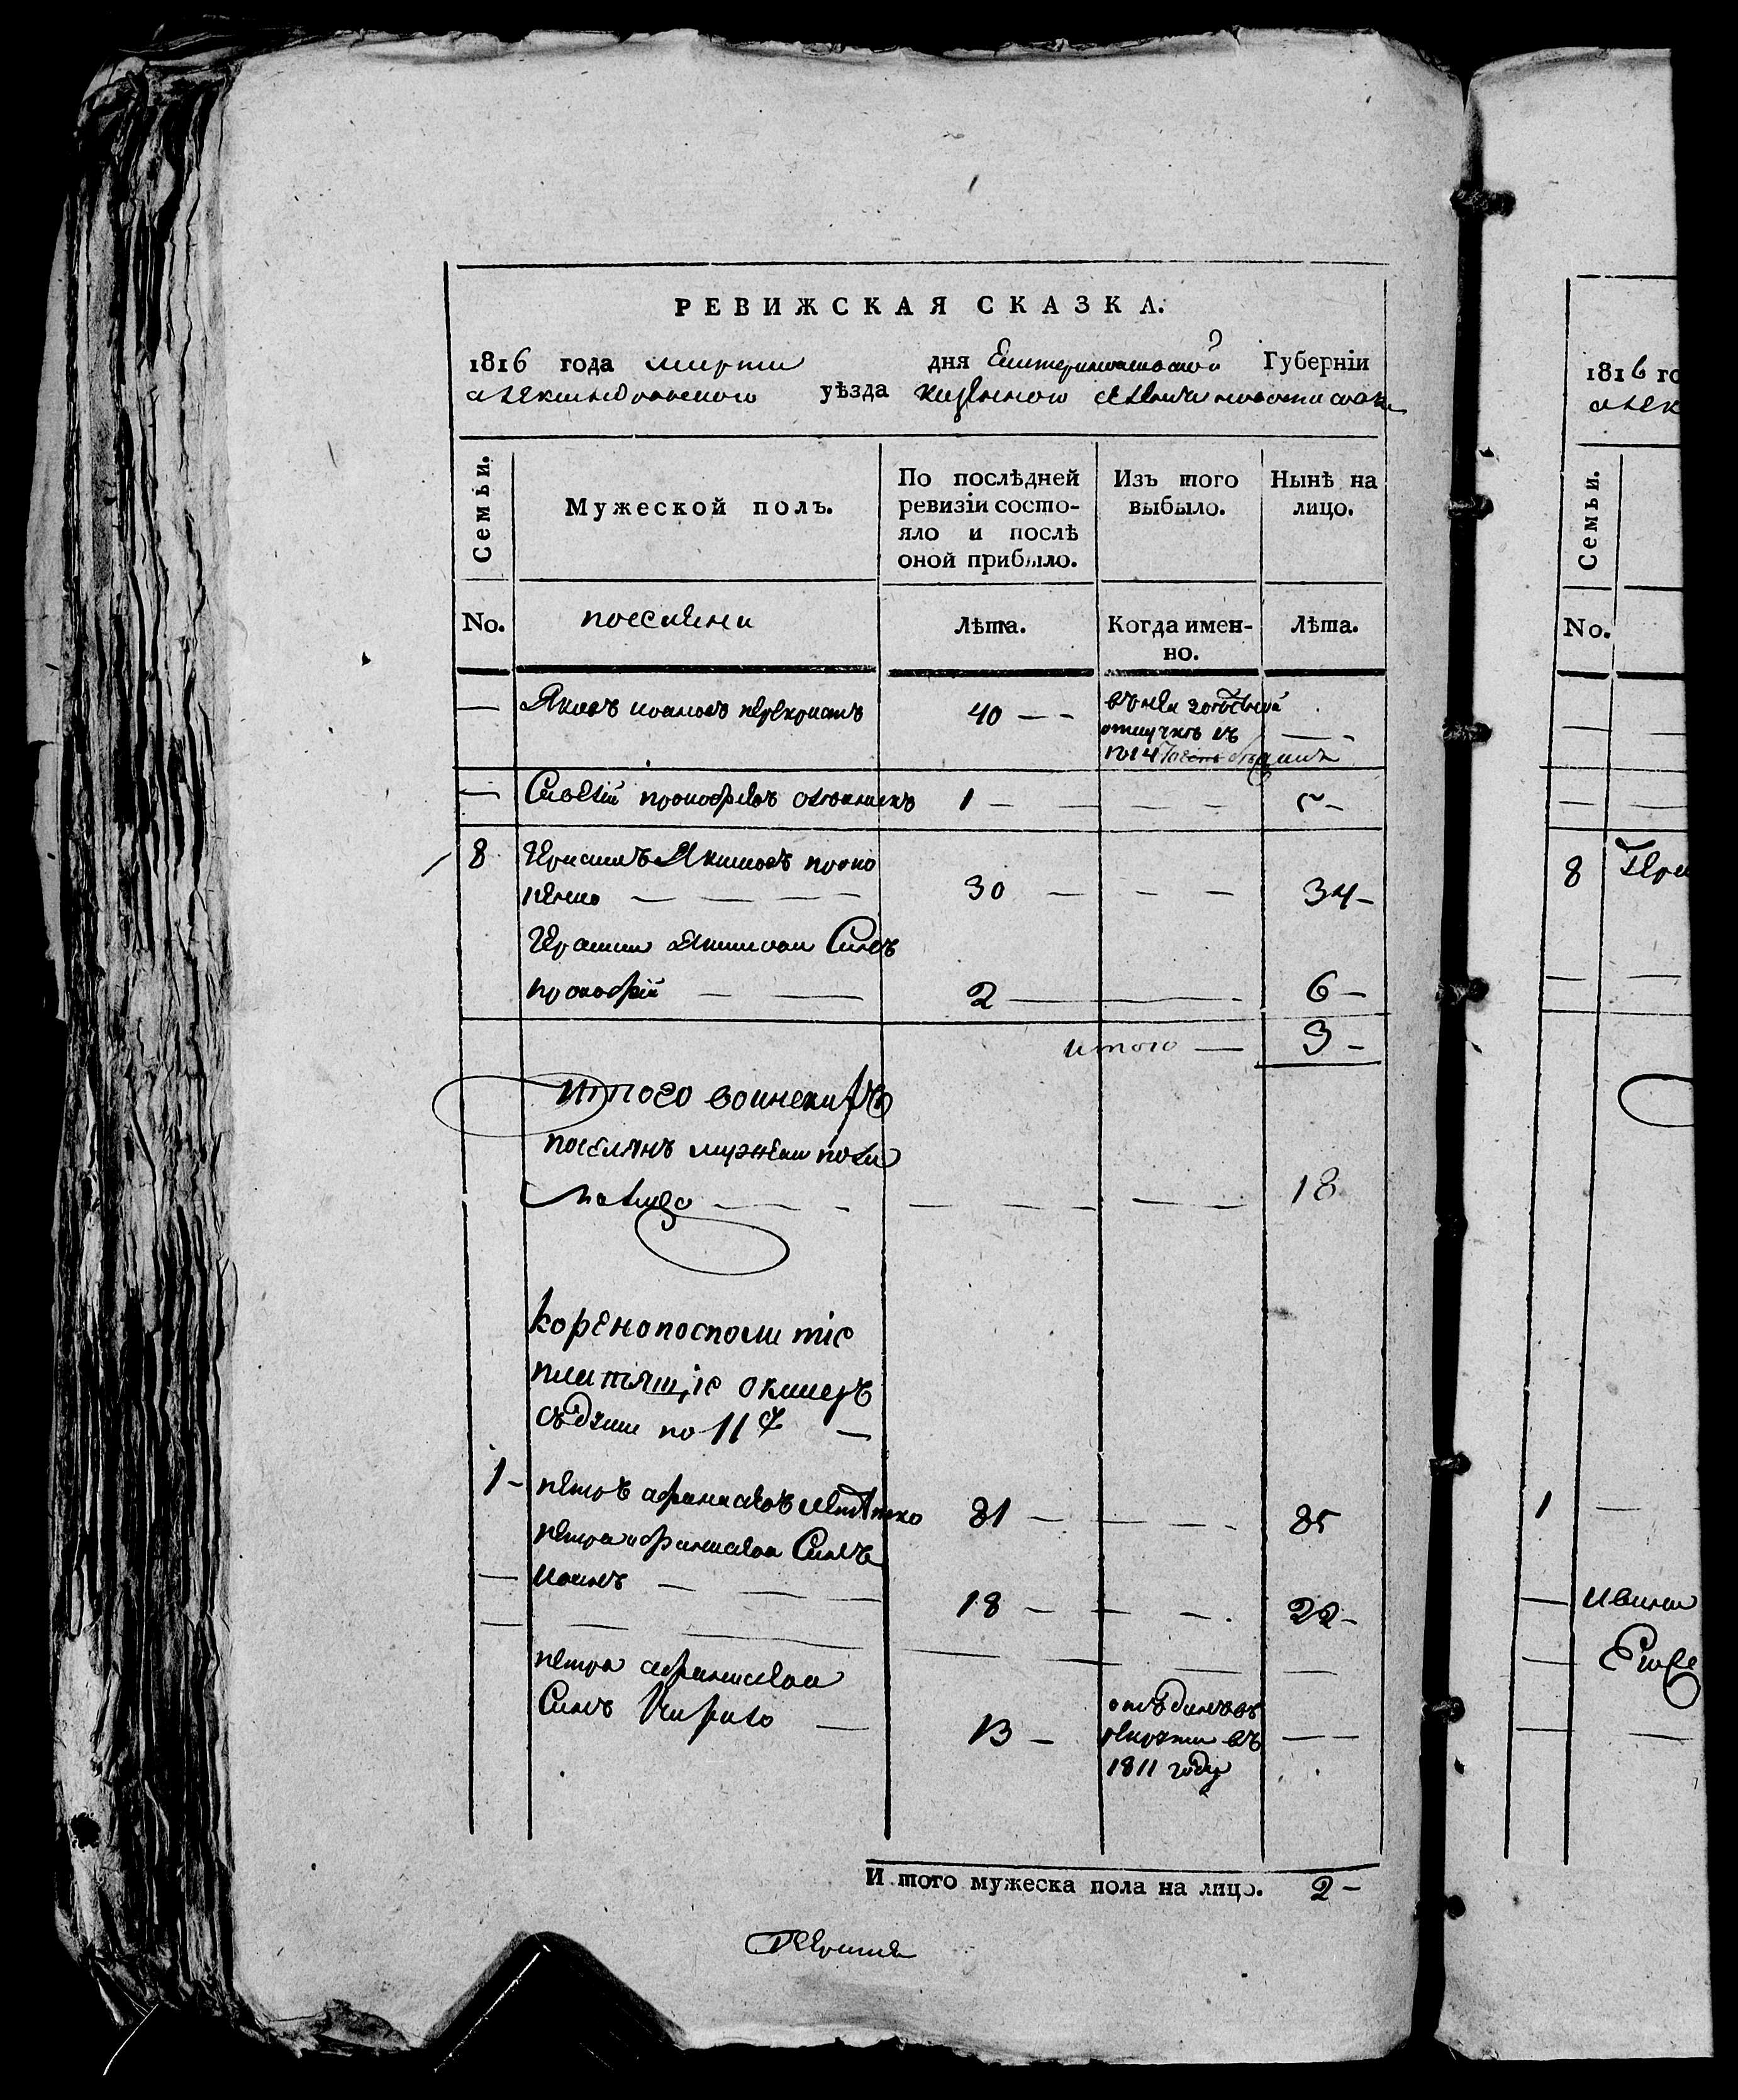 РЕВИЖСКАЯ СКАЗКА.
1816 года марта дня Екатеринославской Губерніи
александровского уѣзда казенного селенія
Семьи.
Мужеской полъ.
По послѣдней
ревизіи состо-
яло и послѣ
оной прибыло.
Изъ того
выбыло.
Нынѣ на
лицо.
No.
поселяни
Лѣта.
Когда имен-
но.
Лѣта.
— Яковъ ивановъ перехристъ 40 — —
отлучкѣ съ
1814
— Савелій прокофіевъ 1 — — — —
8 Герасимъ Якимовъ проко
пенко — — — — 30 — — — 34 —
Герасима Якимова Синъ
прокофій — — 2 — — 6 —
итого — 3 —
Итого воинскихъ
поселянъ мужеска пола
налицо — — — 18
Коренопосполитіе
платящіе окладъ
съ души по 11
1 — петръ афанасіевъ 31 — — — 35
петра афанасіева Синъ
иванъ — — — 18 — — — 22 —
петра афанасіева
Синъ — 13 — отъданъ въ
рекруты въ — —
1811 году
И того мужеска пола на лицо. 2 —
1816 го
алек
Семьи.
No.
8 Гера
1 —
ивана